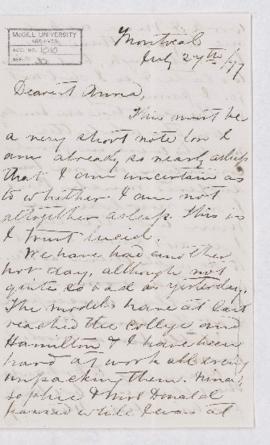 McGILL UNIVERSITY
ARCHIVES
ACC. NO.
REF.
Montreal
July 27th /97
Dearest Anna,
This must be
a very short note for I
am already so nearly asleep
that I am uncertain as
to whether I am not
altogether asleep. This is
I trust lucid.
We have had another
hot day, although not
quite so bad as yesterday.
The models have at last
reached the college and
Hamilton & I have been
hard at work all
unpacking them. Nina,
Sophie & Mrs Donald
while I was at